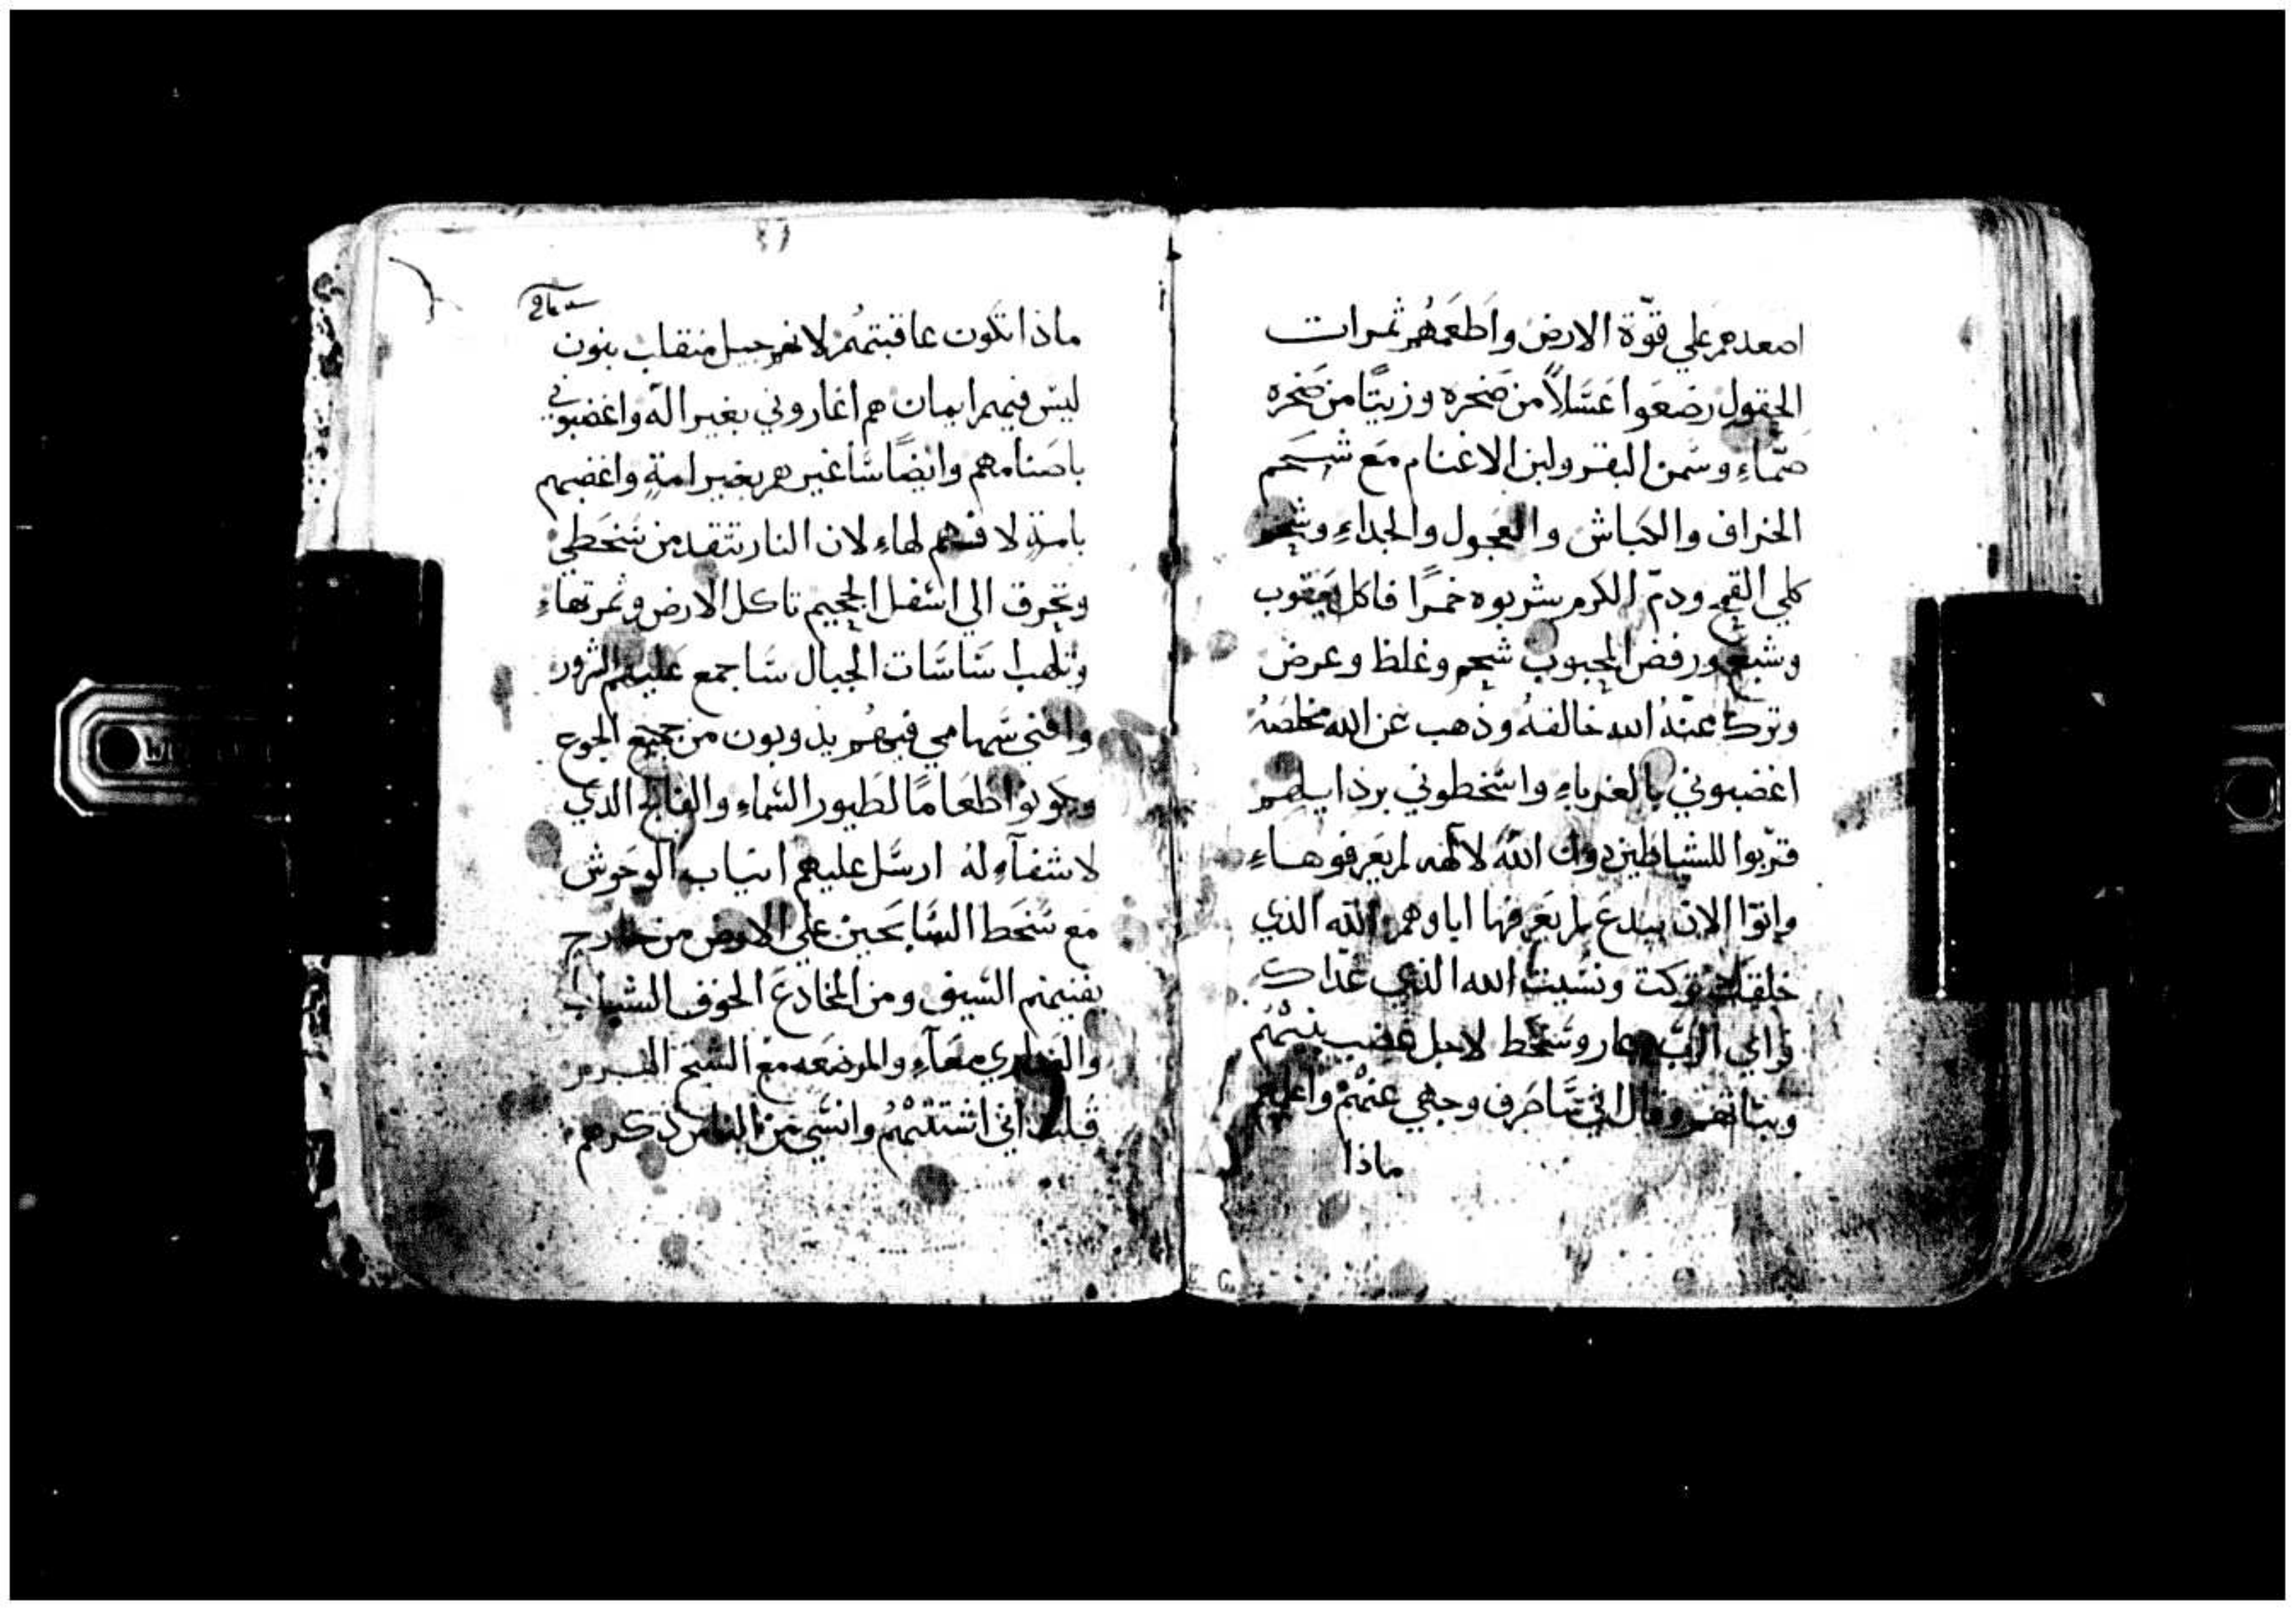 اصعدهم علي قوّة الارض واَطعَمهُم ثمرات
الحقول رضَعَوا عَسَلاً من صَخره وزيتًا من صَخره
صَمّاءِ وسَمن البقر ولبن الاغنام مَع شحم
الخراف والكباش والعجول والجداءِ وشحم
كلي القمح ودمّ الكرم يشربوه خمرًا فاكل يَعقوب
وشبع ورفض المحبوب شحم وغلظ وعرض
وترك عنهُ الله خالقهُ وذهب عن الله مخلصَهُ
اغضبوني بالغرباءِ واسَخطوني برذايلهم
قرّبوا للشياطين دون الله لالهه لم يَعرفوهاءِ
واتوا الان ببدع لم يَعرفها اباوهم الله الذي
خلقك تركت ونسَيت الله الذي غذاك
فراي الربّ وغار وسَخط لاجل غضب بنيهُم
وبناتهم وقال اني سَاصَرف وجهي عنهُم واعلمهم
ماذا
ماذا تكون عاقبتهُم لانهم جيل منقلب بنون
ليسَ فيهم ايمان هم اغاروني بغير الَه واغضبوني
باصَنامهم وايضًا سَاغيرهم بغير امةٍ واغضبهم
بامةٍ لا فهم لهاءِ لان النار تتقد من سَخَطي
وتحرق الي اسَفل الجحيم تاكل الارض وثمرتهاءِ
وتلهب سَاسَات الجبال سَاجمع عَليهم الشرور
وافني سَهامي فيهُم يذوبون من جميع الجوع
ويكونوا طَعَامًا لطيور السَماءِ والفالج الذي
لا شفآءِ لهُ ارسَل عليهم انياب الوحَوش
مَع سَخَط السَابَحين علي الارض من خارج
يفنيهم السَيف ومن المخادعَ الخوف الشباب
والعذاري معَآءِ والمرضَعه معَ الشيخ الهرم
قلت اني اشتتهُم وانسَي من الناس ذكرهم